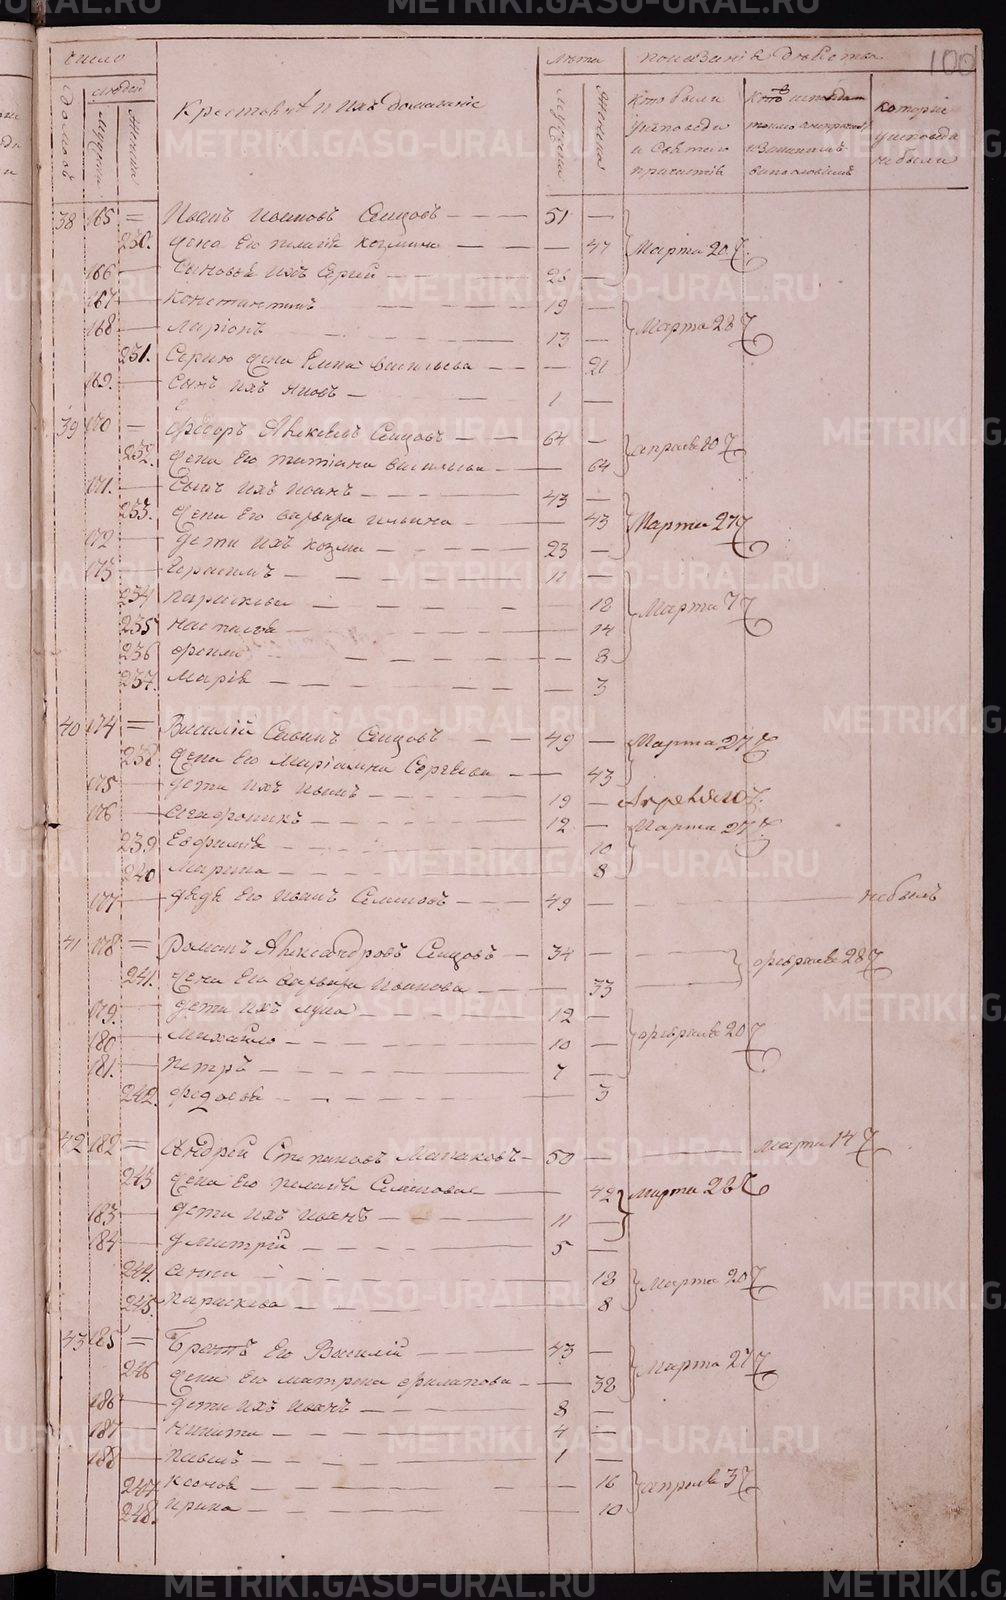 число лѣта показаніе дѣйства 100
домовъ людей мужска женска Крестьянѣ и ихъ домашніе мужска женска Кто были у исповеди и святаго причастія Кто исповедались токмо которые у исповеди небыли
38 165 = Иванъ Ивановъ Сенцовъ 51 —
230. жена его пелагія козмина — 47 Марта 20
166 сыновья ихъ Сергий 26 —
167 константинъ 19 —
168 ларіонъ 13 — Марта 28
231. Сергию жена Елена васильева — 21
169. сынъ ихъ яковъ 1 —
39 170 — Федоръ Алексеевъ Сенцовъ 64 —
232. жена его татіана васильева — 64 апреля 10
171. сынъ ихъ иванъ 43 —
233. жена его варвара ильина — 43 Марта 27
172 дети ихъ козма 23 —
173 Герасимъ 11 —
234 параскева — 18 Марта 7
235 настасья — 14
236 — 8
237. марія — 3
40 174 = Василій Савинъ Сенцовъ 49 — Марта 27
238. жена его Маріамна Сергеева — 43
175 дети ихъ иванъ 19 — Апреля 10
176 андроникъ 12 — Марта 27
239 Евфимія 10
240 Марина 8
177 дядя его иванъ Семеновъ 49 — небылъ
41 178 = Романъ Александровъ Сенцовъ 34 — февраля 28
241. жена его варвара иванова — 33
179. дети ихъ лука 12 —
180 михайло 10 — февраля 20
181. петръ 7 —
242. федосья — 3
42 182 = Андрей Степановъ Малаховъ 50 — марта 14
243 жена его пелагія Семенова — 42 марта 28
183 дети ихъ иванъ 11 —
184 дмитрій 5 —
244. анна 18 Марта 20
245. параскева 8
43 185 = Братъ его Василій 43 —
246 жена его матрена филипова — 38 Марта 27
186 дети ихъ иванъ 8 —
187 никита 4 —
188 павелъ 1 —
247 — 16 апреля 3
248. ирина — 10
METRIKI.GASO-URAL.RU